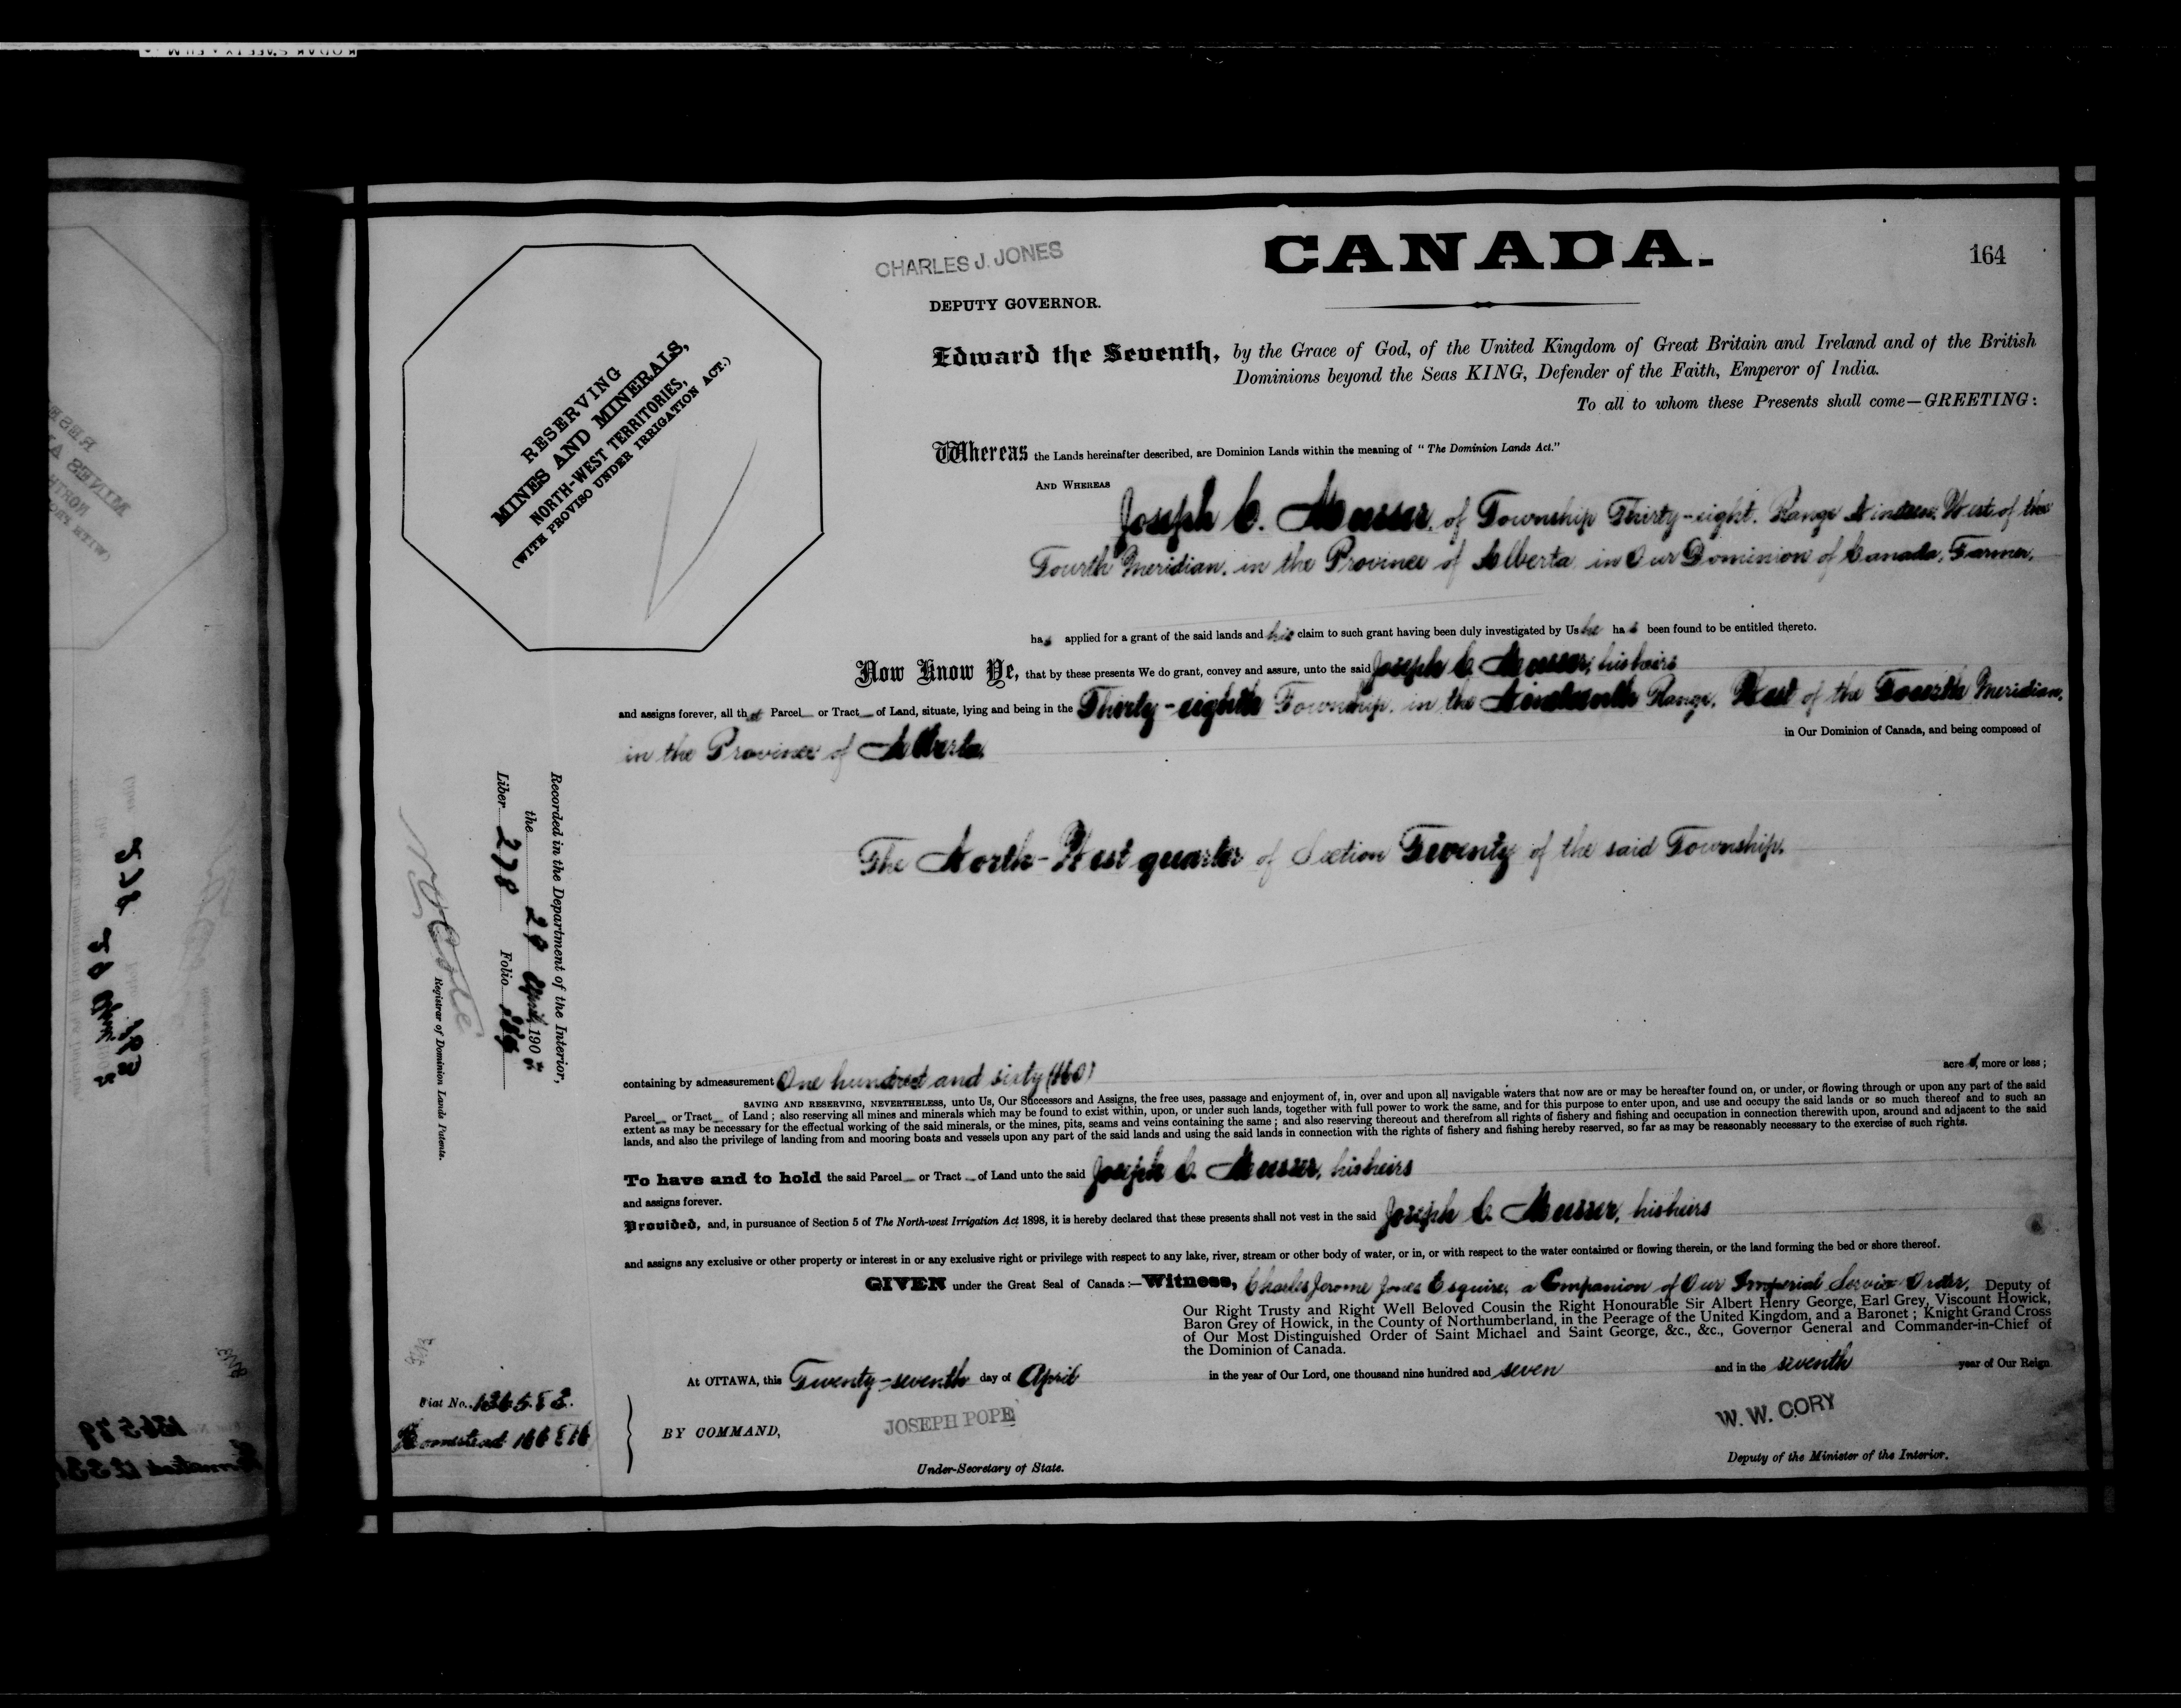 CHARLES J. JONES
CANADA.
164
DEPUTY GOVERNOR.
RESERVING
MINES AND MINERALS,
NORTH-WEST TERRITORIES,
(WITH PROVISO UNDER IRRIGATION ACT.)
Edward the Seventh, by the Grace of God, of the United Kingdom of Great Britain and Ireland and of the British
Dominions beyond the Seas KING, Defender of the Faith, Emperor of India.
To all to whom these Presents shall come—GREETING:
Whereas the Lands hereinafter described, are Dominion Lands within the meaning of "The Dominion Lands Act."
AND WHEREAS
Joseph C. Musser, of Township Thirty-eight, Range Nineteen, West of the
Fourth Meridian, in the Province of Alberta in Our Dominion of Canada, Farmer,
has applied for a grant of the said lands and his claim to such grant having been duly investigated by Us he has been found to be entitled thereto.
Now Know Ye, that by these presents We do grant, convey and assure, unto the said Joseph C. Musser, his heirs
and assigns forever, all that Parcel or Tract of Land, situate, lying and being in the Thirty-eighth Township, in the Nineteenth Range, West of the Fourth Meridian,
in Our Dominion of Canada, and being composed of
in the Province of Alberta.
The North-West quarter of Section Twenty of the said Township.
Recorded in the Department of the Interior,
the 29 April 190
Liber 278 Folio
Registrar of Dominion Lands Patents.
containing by admeasurement One hundred and sixty (160) acres, more or less;
SAVING AND RESERVING, NEVERTHELESS, unto Us, Our Successors and Assigns, the free uses, passage and enjoyment of, in, over and upon all navigable waters that now are or may be hereafter found on, or under, or flowing through or upon any part of the said
Parcel or Tract of Land; also reserving all mines and minerals which may be found to exist within, upon, or under such lands, together with full power to work the same, and for this purpose to enter upon, and use and occupy the said lands or so much thereof and to such an
extent as may be necessary for the effectual working of the said minerals, or the mines, pits, seams and veins containing the same; and also reserving thereout and therefrom all rights of fishery and fishing and occupation in connection therewith upon, around and adjacent to the said
lands, and also the privilege of landing from and mooring boats and vessels upon any part of the said lands and using the said lands in connection with the rights of fishery and fishing hereby reserved, so far as may be reasonably necessary to the exercise of such rights.
To have and to hold the said Parcel or Tract of Land unto the said Joseph C. Musser, his heirs
and assigns forever.
Provided, and, in pursuance of Section 5 of The North-west Irrigation Act 1898, it is hereby declared that these presents shall not vest in the said Joseph C. Musser, his heirs
and assigns any exclusive or other property or interest in or any exclusive right or privilege with respect to any lake, river, stream or other body of water, or in, or with respect to the water contained or flowing therein, or the land forming the bed or shore thereof.
GIVEN under the Great Seal of Canada:—Witness, Charles Jerome Jones Esquire, a Companion of Our Imperial Service Order, Deputy of
Our Right Trusty and Right Well Beloved Cousin the Right Honourable Sir Albert Henry George, Earl Grey, Viscount Howick,
Baron Grey of Howick, in the County of Northumberland, in the Peerage of the United Kingdom, and a Baronet; Knight Grand Cross
of Our Most Distinguished Order of Saint Michael and Saint George, &c., &c., Governor General and Commander-in-Chief of
the Dominion of Canada.
At OTTAWA, this Twenty-seventh day of April in the year of Our Lord, one thousand nine hundred and seven and in the seventh year of Our Reign
Fiat No.
Homestead
BY COMMAND,
JOSEPH POPE
Under-Secretary of State.
W. W. CORY
Deputy of the Minister of the Interior.